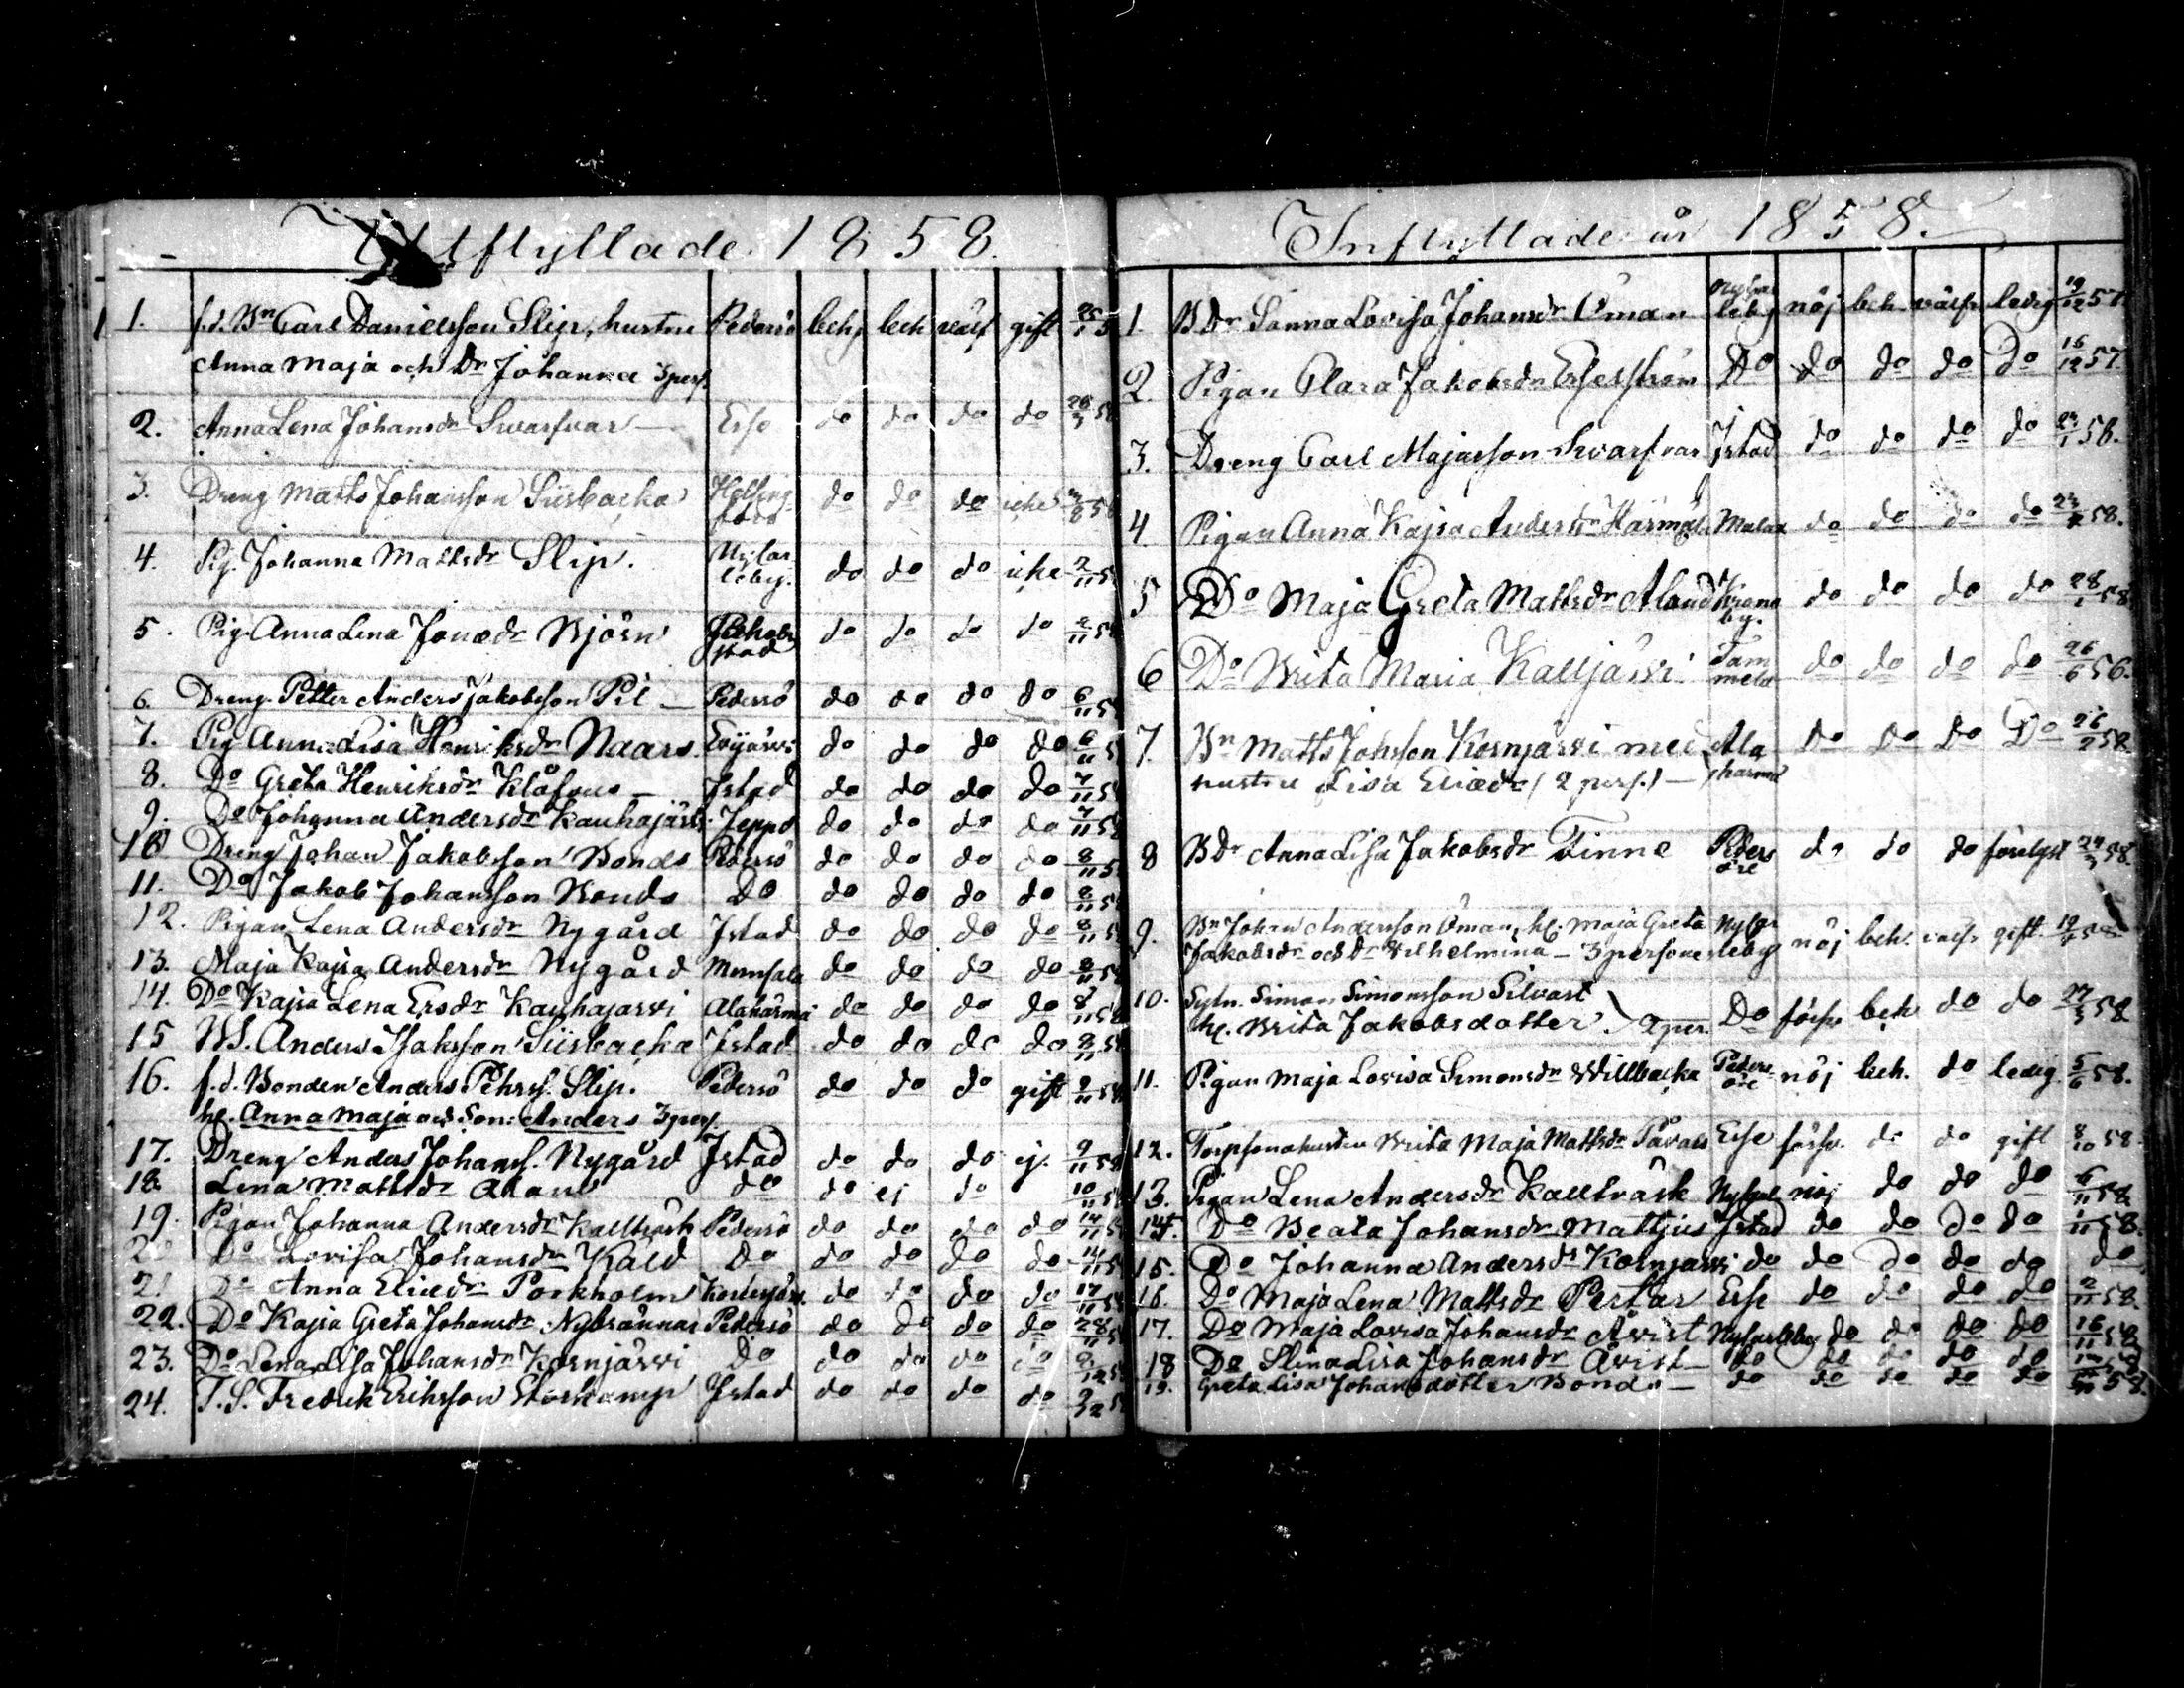 Utflyttade 1858.
1. f.d. Bn Carl Danielsson Slip, hustru Pedersö beh. beh. välf. gift
Anna Maja och Dr Johanna 3 pers.
2. Anna Lena Johansdr Svarfvar Esse do do do do 28/3 58
3. Dreng Matts Johansson Siisbacka Helsingfors do do do icke
4. Pig. Johanna Mattsdr Slip. Nykarleby. do do do icke 2/11 5
5. Pig. Anna Lena Jonædr Björn Jakobstad do do do do 2/11 58
6. Dreng Petter Anders Jakobsson Pil Pedersö do do do do 6/11 5
7. Pig Anna Lisa Henriksdr Naars. Evijärvi do do do do 6/11 5
8. Do Greta Henriksdr Klåfvus Jstad do do do do 7/11 58
9. Do Johanna Andersdr Kauhajärvi Jeppo do do do do 7/11 58
10 Dreng Johan Jakobsson Bonds Pedersö do do do do 8/11 5
11. Do Jakob Johansson Bonds Do do do do do 8/11 5
12. Pigan Lena Andersdr Nygård Jstad do do do do 8/11 5
13. Maja Kajsa Andersdr Nygård Munsala do do do do 8/11 58
14. Do Kajsa Lena Ersdr Kauhajärvi Alahärmä do do do do 8/11 58
15 Anders Isaksson Siisbacka Jstad. do do do do 8/11 58
16. f.d. Bonden Anders Pehrs. Slip. Pedersö do do do gift 9/11 58
he. Anna Maja och Son: Anders 3 pers.
17. Dreng Anders Johans. Nygård Jstad do do do ej. 9/11 58
18 Lena Mattsdr Åland do do ej do 10/11 58
19. Pigan Johanna Andersdr Kallträsk Pedersö do do do do 14/11 5
20 Do Lovisa Johansdr Kald Do do do do do 14/11 58
21 Do Anna Eliædr Porkholm do do do do 17/11 58
22. Do Kajsa Greta Johansdr Nybrännas Pedersö do do do do 28/11 5
23. Do Lena Lisa Johansdr Kosnjärvi Do do do do do
24. T.S. Fredrik Eriksson Storkamp Jstad do do do do
Inflyttade år 1858.
1. B Dr Sanna Lovisa Johansdr Öman Nykarleby nöj beh. välfr ledig 19/12 57
2. Pigan Clara Jakobsdr Do do do do Do 16/12 57.
3. Dreng Carl Majasson Svarfvar Jstad do do do do 58.
4. Pigan Anna Kajsa Andersdr Härmäl. Malax do do do do 58.
5 Do Maja Greta Mattsdr Åland Kronoby. do do do do 28/ 58
6 Do Brita Maria Kalljärvi Tammela do do do do 26/6 56.
7. Bn Matts Johsson Kosnjärvi med Alahärmä do do do Do 26/2 58.
hustru Lisa Eliædr (2 pers.)
8 B Dr Anna Lisa Jakobsdr Finne Pedersöre do do do 24/3 58.
9. Bn Johan Andersson Öman, he. Maja Greta Nykarleby nöj beh. välfr gift. 58
Jakobsdr och Dr Wilhelmina — 3 personer
10. Sytn. Simon Simonsson Silvast
he. Brita Jakobsdotter. 2 per. Do förfr. beh do do 27/5 58
11. Pigan Maja Lovisa Simonsdr Willbacka Pedersöre nöj beh. do ledig. 5/6 58.
12. Torpsonahustru Brita Maja Mattsdr Påvals Esse förfr. do do gift 8/10 58
13. Pigan Lena Andersdr Kallträsk Nykarl. nöj do do do 6/11 58
14. Do Beata Johansdr Mattjus Jstad do do do do 1/11 58.
15. Do Johanna Andersdr Kosnjärvi do do do do do do
16. Do Maja Lena Mattsdr Pertar Esse do do do do 2/11 58.
17. Do Maja Lovisa Johansdr Åvist Nykarleby do do do do 16/11 58
18 Do Slina Lisa Johansdr Åvist do do do do do
19. Greta Lisa Johansdotter Bonds do do do do do 58.